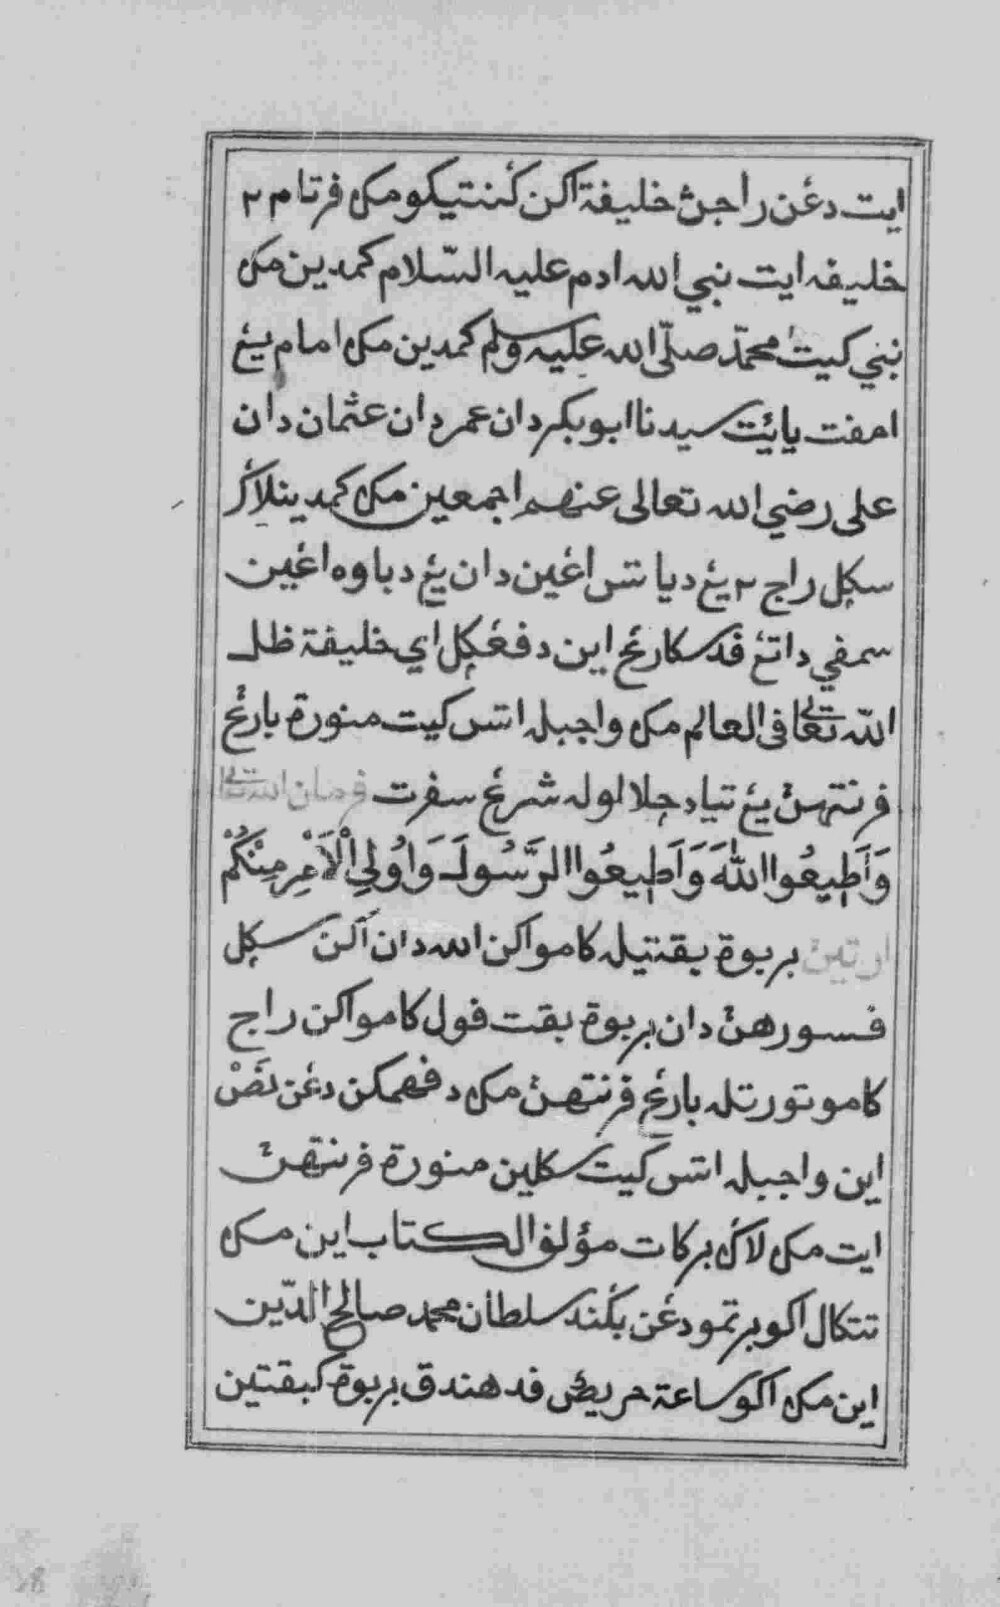 ايت دڠن راجڽ خليفة اکن ݢنتيکو مک ڤرتام ٢
خليفه ايت نبي الله ادم عليه السّلام کمدين مک
نبي کيت محمّد صلّى الله عليه وسلم کمدين مک امام يڠ
امفت يائيت سيدنا ابو بکر دان عمر دان عثمان دان
على رضي الله تعالى عنهم اجمعين مک کمدينلاݢر
سکل راج ٢ يڠ دياتس اڠين دان يڠ دباوه اڠين
سمفي داتڠ فد سکارڠ اين دفڠکل اي خليفة ظل
الله تعالى فى العالم مک واجبله اتس کيت منورة بارڠ
فرنتهڽ يڠ تياد جلا اوله شرع سفرت فرمان الله تعالى
وَأَطِيعُوا اللّٰهَ وَأَطِيعُوا الرَّسُولَ وَأُولِي الْأَمْرِ مِنْكُمْ
ارتين بربوة بقتيله کامو اکن الله دان اکن سکل
فسورهڽ دان بربوة بقت فول کامو اکن راج
کامو تورتله بارڠ فرنتهڽ مک دفهمکن دڠن نصّ
اين واجبله اتس کيت سکلين منورة فرنتهڽ
ايت مک لاݢ برکات مؤلف الکتاب اين مک
تتکال اکو برتمو دڠن بݢند سلطان محمد صالح الدّين
اين مک اکو ساعة حريص فد هندق بربوة کبقتين